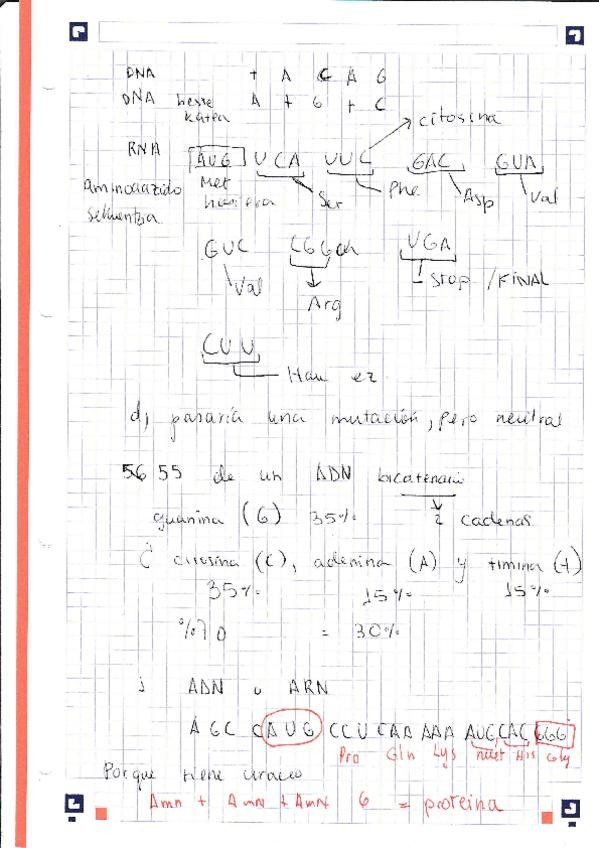 DNA + A C A G
DNA beste A + G + C
katea
citosina
RNA AUG UCA UUC GAC GUA
Aminoazido Met Ser Phe Asp Val
sekuentzia hasiera
GUC CGG UGA
Val Arg Stop / FINAL
CUU
Hau ez
d) pasaría una mutación, pero neutral
56 55 de un ADN bicatenario
guanina (G) 35% 2 cadenas
¿ citosina (C), adenina (A) y timina (t)
35% 15% 15%
%70 = 30%
¿ ADN o ARN
A GC CAUG CCU CAA AAA AUG CAC GGG
Pro Gln Lys Met His Gly
Porque tiene uracilo
Amn + Amn + Amn 6 = proteina